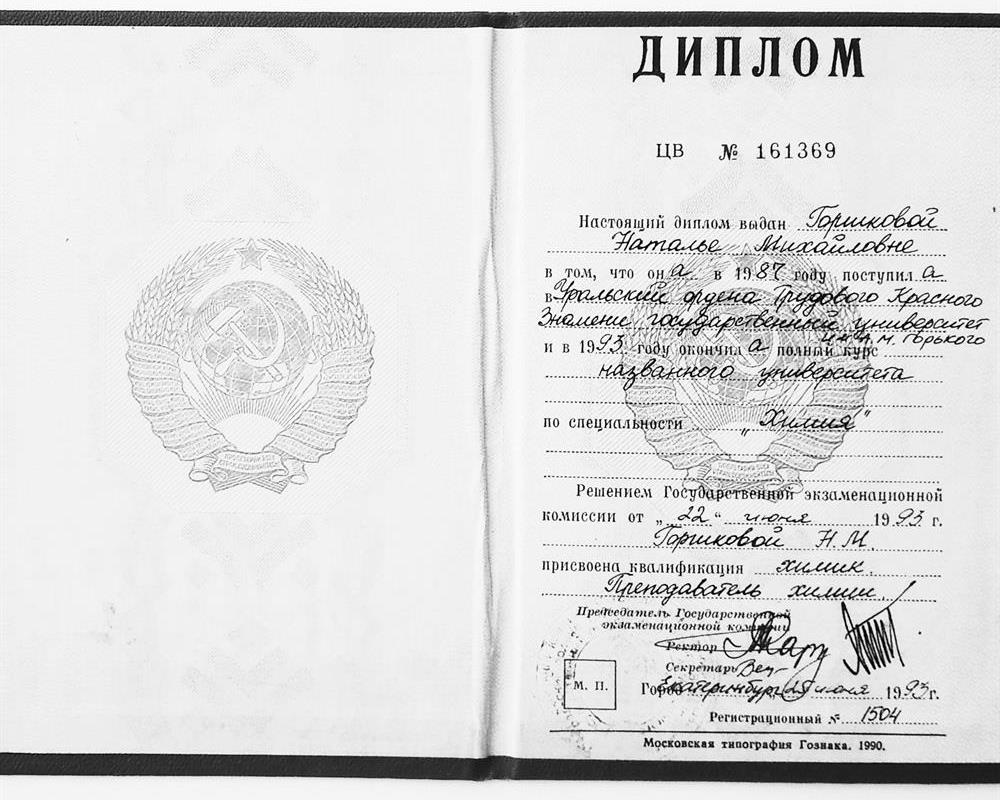 ДИПЛОМ
ЦВ № 161369
Настоящий диплом выдан Горшковой
Наталье Михайловне
в том, что она в 1987 году поступила
в Уральский ордена Трудового Красного
Знамени государственный университет
им. А. М. Горького
и в 1993 году окончила полный курс
названного университета
по специальности „Химия"
Решением Государственной экзаменационной
комиссии от „22" июня 1993 г.
Горшковой Н. М.
присвоена квалификация химик.
Преподаватель химии.
Председатель Государственной
экзаменационной комиссии
Ректор
Секретарь
М. П.
Город Екатеринбург, июня 1993 г.
Регистрационный № 1504
Московская типография Гознака. 1990.